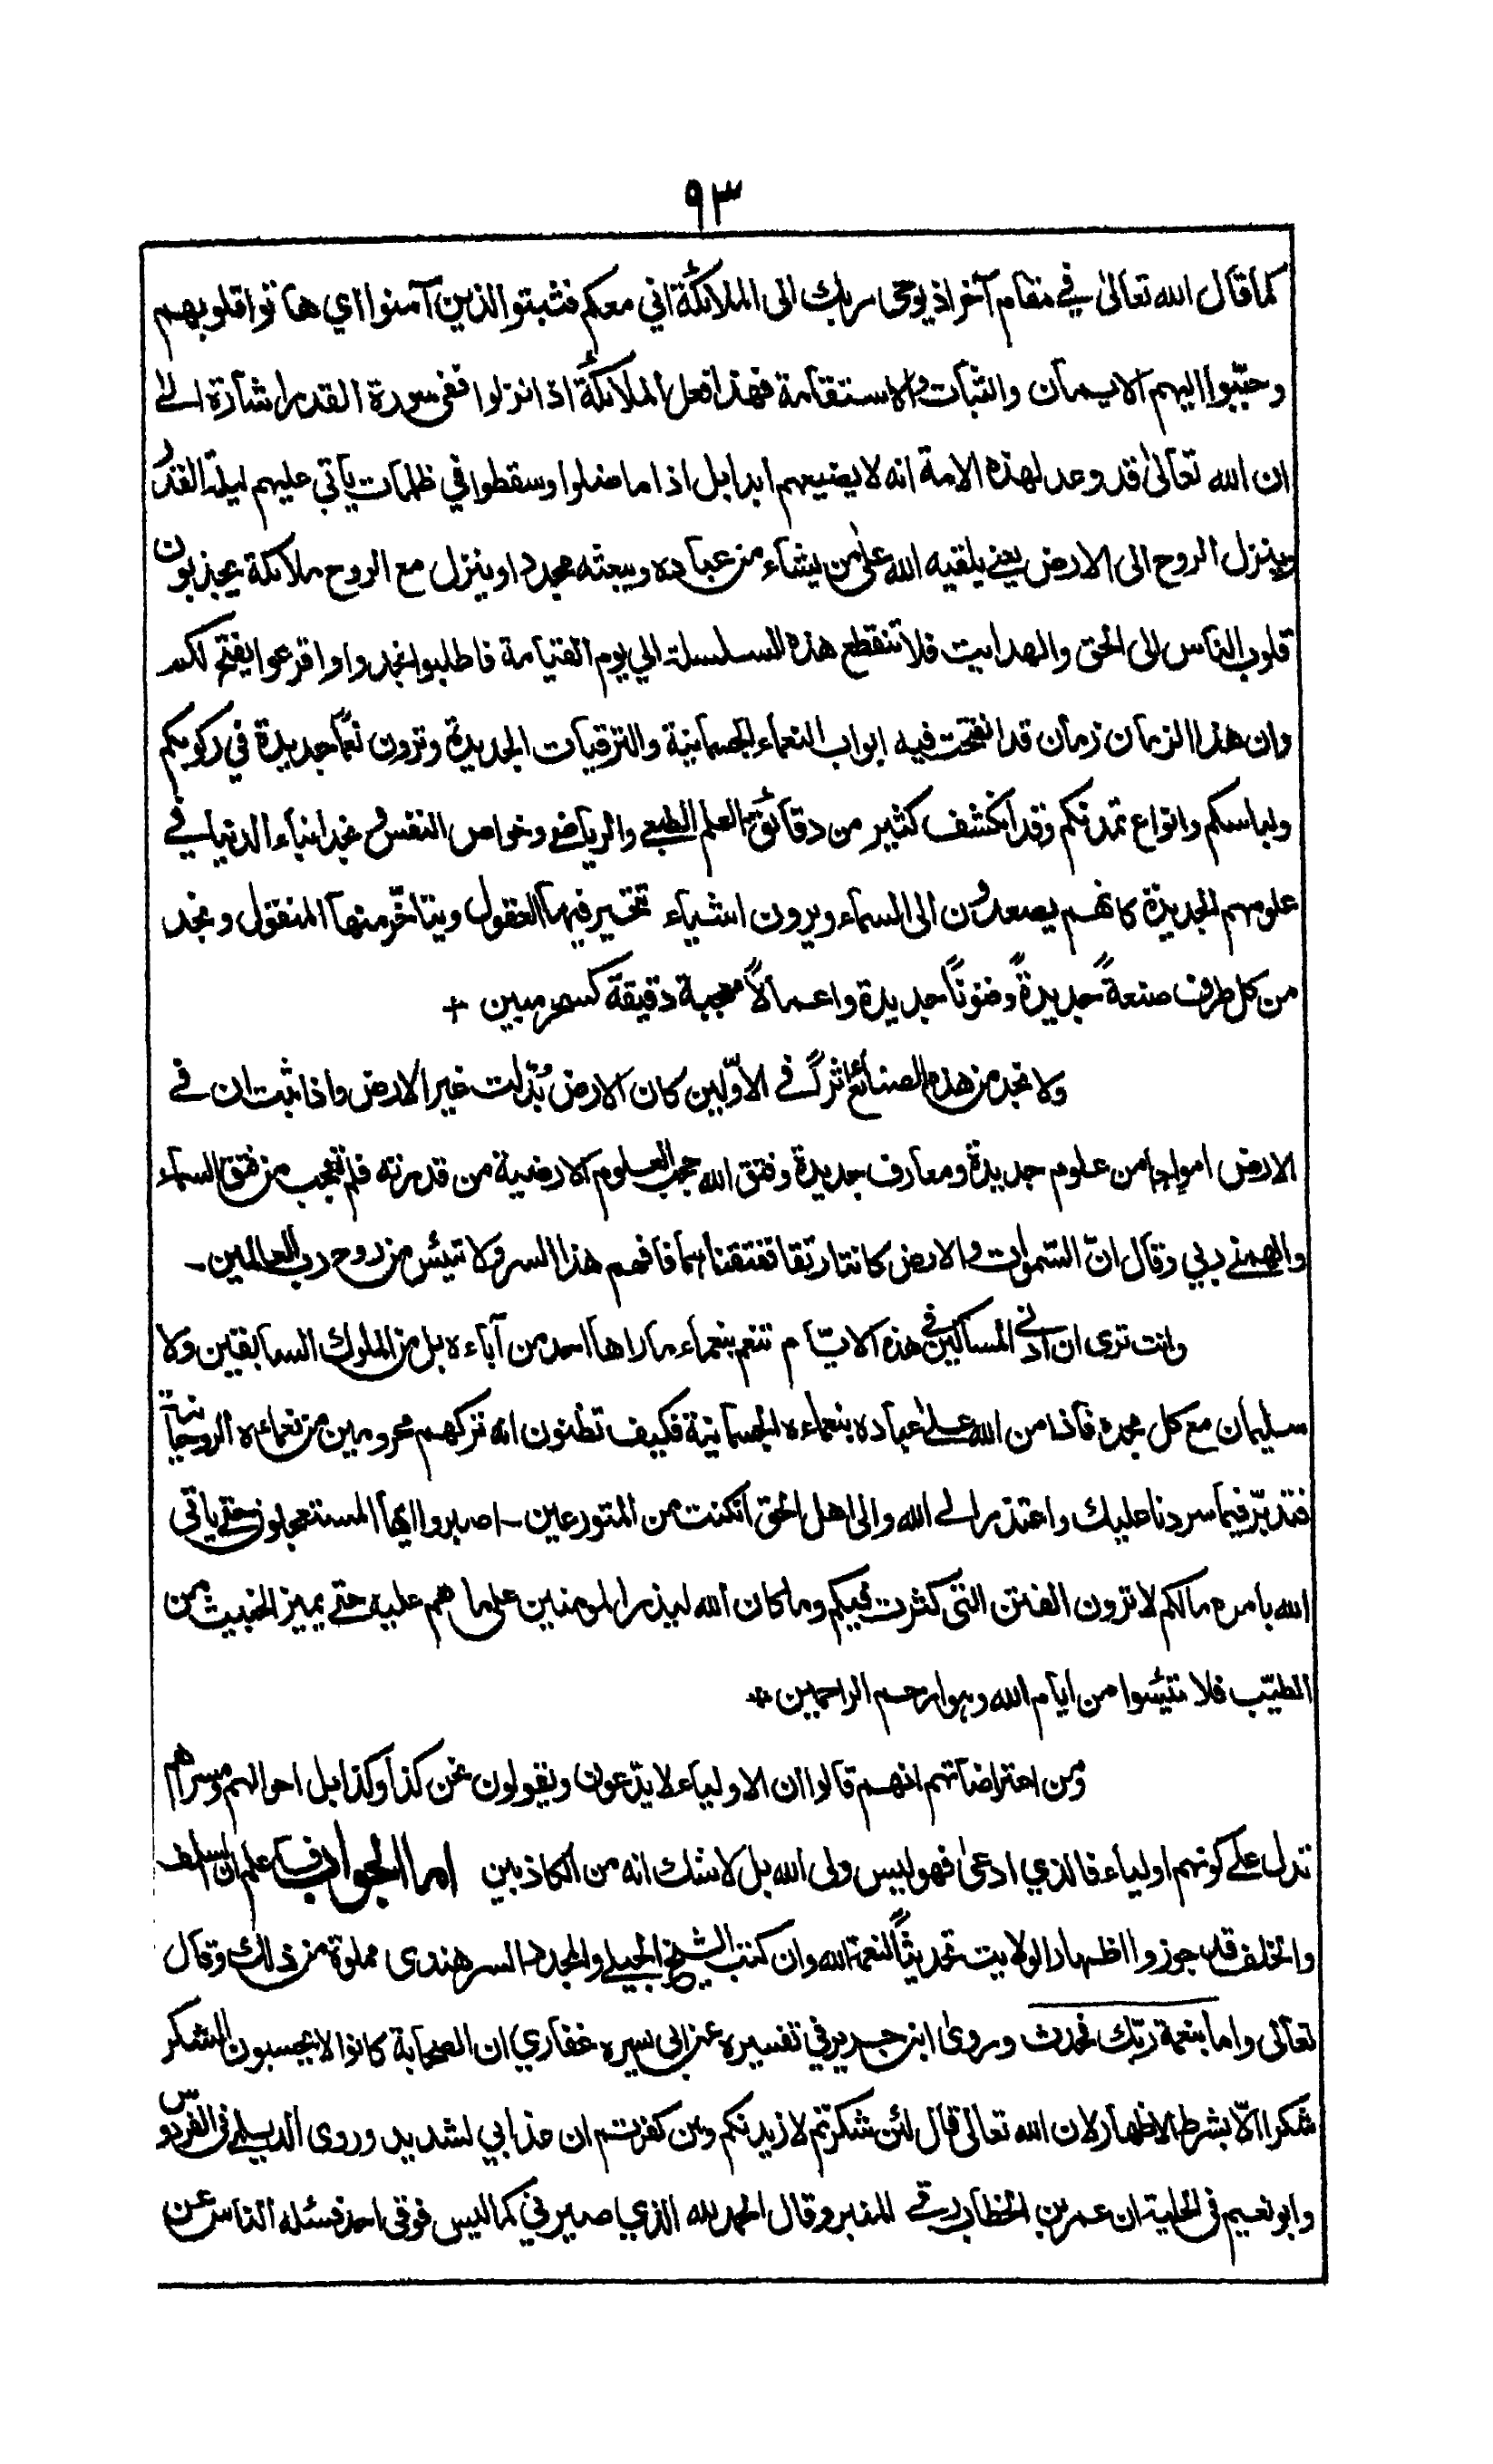 ٩٣
كما قال الله تعالىٰ في مقام آخر اذ يوحى ربك الى الملائكة اني معكم فثبتوا الذين آمنوا اي هاتوا قلوبهم
وحبّبوا اليهم الايمان والثبات والاستقامة فهذا فعل الملائكة اذا نزلوا ففى سورة القدر اشارة الىٰ
ان الله تعالىٰ قد وعد لهذه الامة انه لا يضيعهم ابدا بل اذا ما ضلوا وسقطوا في ظلمات ياتي عليهم ليلة القدر
وينزل الروح الى الارض يعني يلقيه الله علىٰ من يشاء من عباده ويبعثه مجددا وينزل مع الروح ملائكة يجذبون
قلوب الناس الى الحق والهدايت فلا تنقطع هذه السلسلة الي يوم القيامة فاطلبوا تجدوا واقرعوا يفتح لكم
وان هذا الزمان زمان قد انفتحت فيه ابواب النعماء الجسمانية والترقيات الجديدة وترون نعمًا جديدة في ركوبكم
ولباسكم وانواع تمدنكم وقد انكشف كثير من دقائق العلم الطبعي والرياضي وخواص النفس ونجد ابناء الدنيا في
علومهم الجديدة كانهم يصعدون الى السماء ويرون اشياء تتحير فيها العقول ويتاخّر منها المنقول ونجد
من كل طرف صنعةً جديدةً وفنونًا جديدة واعمالًا معجبة دقيقة كسحر مبين +
ولا نجد من هذه الصنائع اثرًا في الاوّلين كان الارض بُدّلت غير الارض واذا ثبت ان في
الارض امواجا من علوم جديدة ومعارف جديدة وفتق الله حجب العلوم الارضية من قدرته فلم تعجب من فتق السماء
والهمني ربي وقال انّ السّموات والارض كانتا رتقا ففتقناهما فافهم هذا السر ولا تيئس من روح رب العالمين۔
وانت ترى ان ادنى المساكين في هذه الايّام تنعم بنعماء ما راها احد من آباءه بل من الملوك السابقين ولا
سليمان مع كل مجده فاذا من الله علىٰ عباده بنعماءه الجسمانية فكيف تظنون انه تركهم محرومين من نعماءه الروحانية
فتدبّر فيما سردنا عليك واعتذر الى الله والى اهل الحق ان كنت من المتورعين۔ اصبروا ايها المستعجلون حتى ياتي
الله بامره مالكم لا ترون الفتن التي كثرت فيكم وما كان الله ليذر المومنين على ما هم عليه حتى يميز الخبيث من
الطيّب فلا تيئسوا من ايام الله وهو ارحم الراحمين *
ومن اعتراضاتهم انهم قالوا ان الاولياء لا يدّعون ويقولون نحن كذا وكذا بل احوالهم وسيرهم
تدل علىٰ كونهم اولياء فالذي ادعىٰ فهو ليس ولى الله بل لا شك انه من الكاذبين اما الجواب فاعلم ان السلف
والخلف قد جوزوا اظهار الولايت تحديثًا لنعمة الله وان كتب الشيخ الجيلي والمجدد السرهندى مملوة من ذالك وقال
تعالى واما بنعمة ربّك فحدث وروىٰ ابن جرير في تفسيره عن ابى يسيره غفاري ان الصحابة كانوا لا يحسبون الشكر
شكرا الّا بشرط الاظهار لان الله تعالىٰ قال لئن شكرتم لازيدنكم ولئن كفرتم ان عذابي لشديد وروى الديلمي فى الفردوس
وابو نعيم فى الحلية ان عمر بن الخطاب رقى المنبر وقال الحمد لله الذي صيرني كما ليس فوقى احد فسئله الناس عن